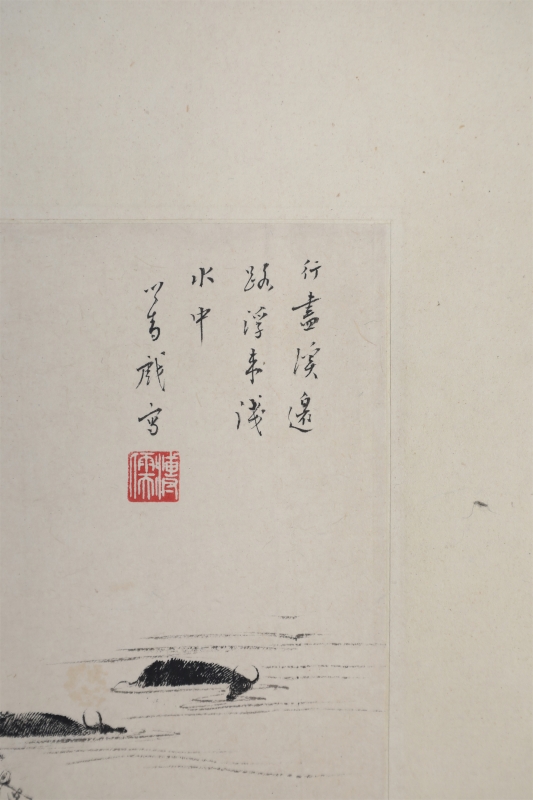 行盡溪邊
路浮來淺
水中
心畬戲寫
溥儒